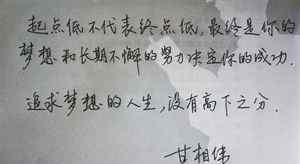 起点低不代表终点低，最终是你的
梦想和长期不懈的努力决定你的成功.
追求梦想的人生，没有高下之分.
甘相伟